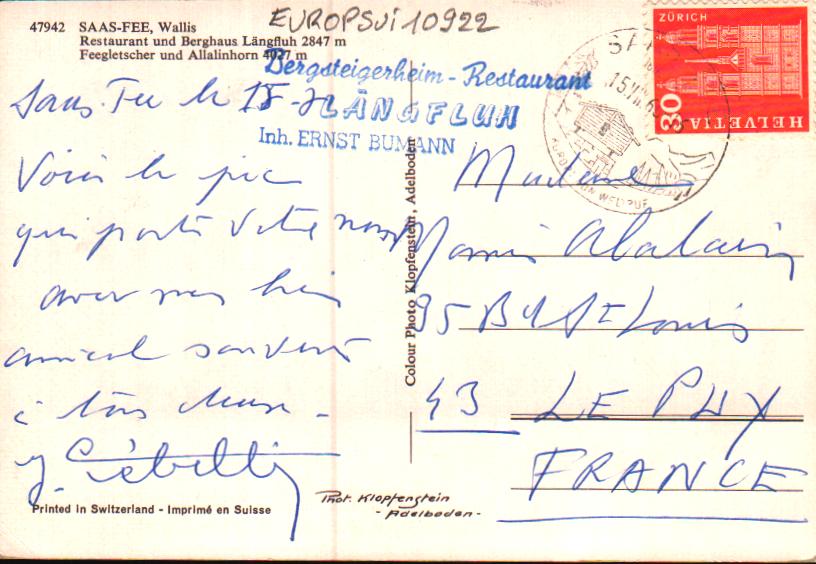 EUROPSUI10922
47942 SAAS-FEE, Wallis
Restaurant und Berghaus Längfluh 2847 m
Feegletscher und Allalinhorn 4027 m
Bergsteigerheim-Restaurant
LÄNGFLUH
Inh. ERNST BUMANN
Saas. Fee le 15-
Voici le pic
qui porte votre nom
avec mes bien
amical souvenir
à tous deux -
Colour Photo Klopfenstein, Adelboden
ZÜRICH
30
HELVETIA
15.VII.6
WELTRUF
Madame
Alalain
95 Bd St Louis
43 LE PUY
FRANCE
Printed in Switzerland - Imprimé en Suisse
Phot. Klopfenstein
- Adelboden -